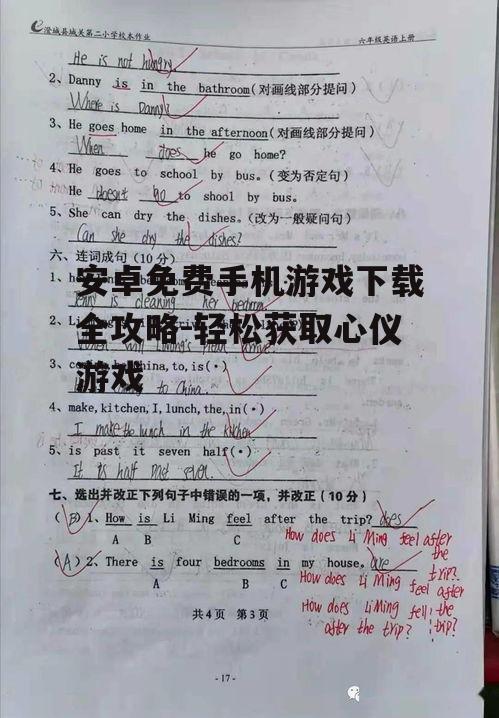 澄城县城关第二小学校本作业 六年级英语上册
He is not hungry
2、Danny is in the bathroom(对画线部分提问)
Where is Danny?
3、He goes home in the afternoon(对画线部分提问)
When does he go home?
4、He goes to school by bus.(变为否定句)
He doesn't go to shool by bus.
5、She can dry the dishes.(改为一般疑问句)
Can she dry the dishes?
六、连词成句(10分)
安卓免费手机游戏下载
Jenny is cleaning her bedroom
2、Li
全攻略-轻松获取心仪
3、china,to,is(·)
游戏
to China.
4、make,kitchen,I,lunch,the,in(·)
I make the lunch in the kitchen
5、is past it seven half(·)
It is half past seven.
七、选出并改正下列句子中错误的一项,并改正(10分)
(B)1、How is Li Ming feel after the trip? does
A B C
How does Li Ming feel after the trip?
(A)2、There is four bedrooms in my house. are
A B C
How does Li Ming feel after the trip?
How does Li Ming fell after the trip?
共4页 第3页
-17-